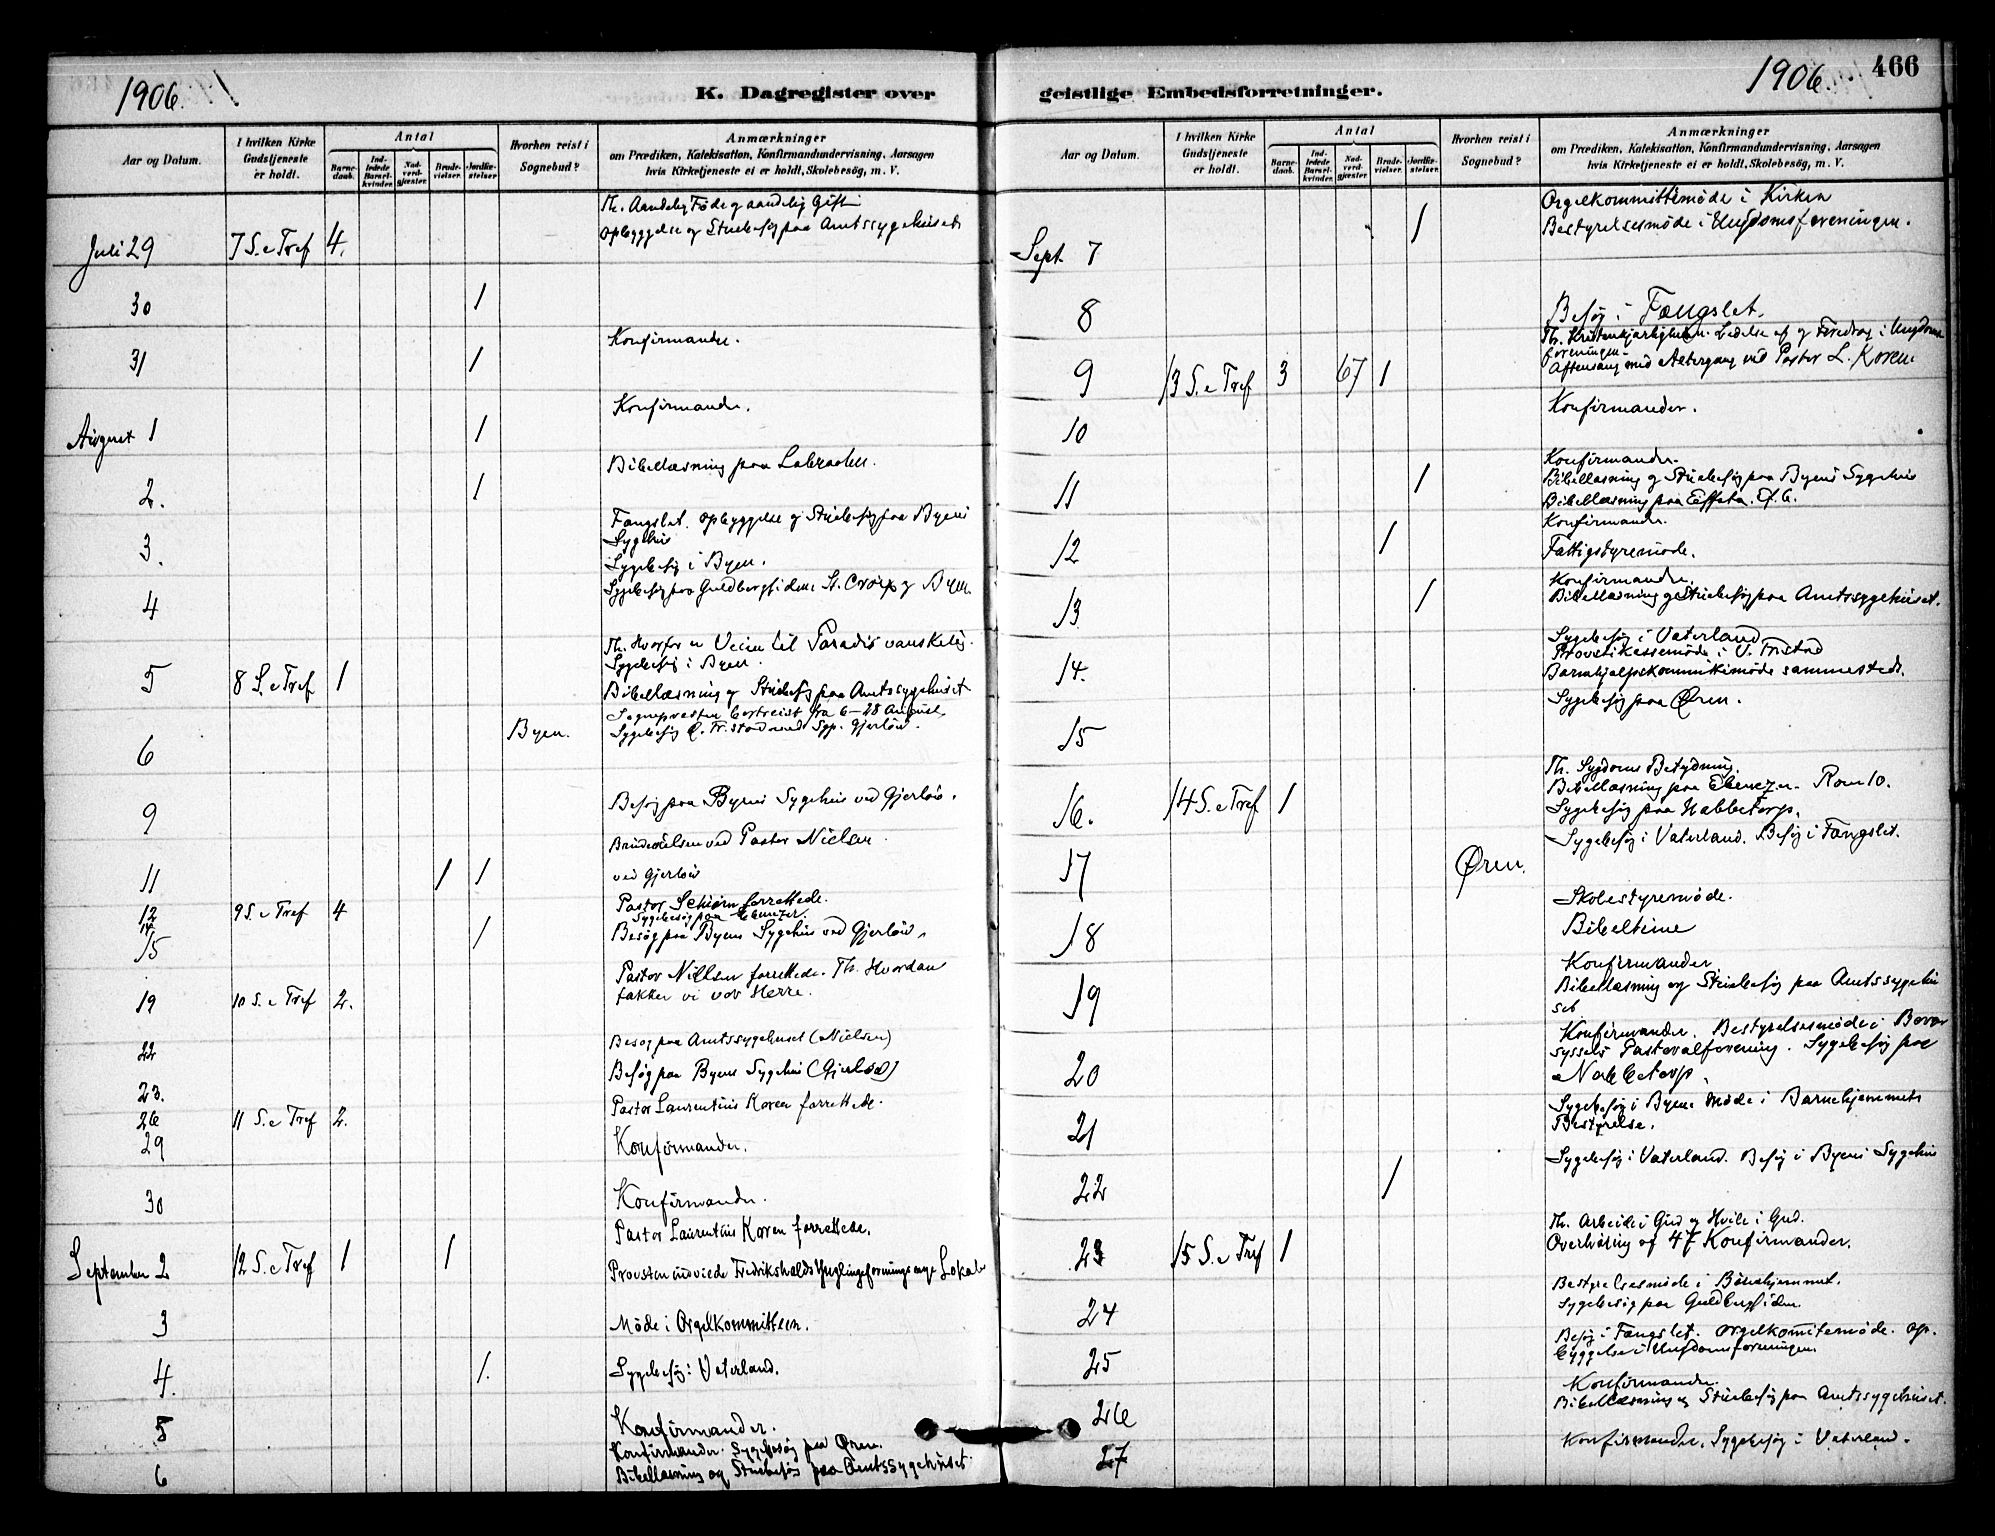 1906.
K. Dagregister over
Aar og Datum.
I hvilken Kirke Gudstjeneste er holdt.
Antal
Barnedaab.
Indledede Barselkvinder.
Nadverdgjæster.
Brudevielser.
Jordfæstelser.
Hvorhen reist i Sognebud?
Anmærkninger
om Prædiken, Katekisation, Konfirmandundervisning, Aarsagen
hvis Kirketjeneste ei er holdt, Skolebesøg, m. V.
Th. Aandelig Føde og aandelig Gift
Juli 29 7 S. e Tref 4. Opbyggelse og Stuebesøg paa Amtssygehuset
30 1
Konfirmander.
31 1
Konfirmander.
August 1 1
Bibellæsning paa
2. 1
Fængslet. Opbyggelse og Stuebesøg paa Byens
Sygehus
3.
Sygebesøg i Byen.
Sygebesøg paa Guldbergsiden St. Croix og Byen.
4
Th. Hvorfor er Veien til Paradis vanskelig.
Sygebesøg i Byen.
5 8 S. e Tref 1
Bibellæsning og Stuebesøg paa Amtssygehuset
Sognepresten bortreist fra 6–28 August
Byen. Sygebesøg Gjerløw.
6
Besøg paa Byens Sygehus ved Gjerløw.
9
Brudevielsen ved Pastor Nielsen
11 1 1 ved Gjerløw
12 9 S. e Tref 4 Pastor Schiørn forrettede.
14 Sygebesøg paa Ebenezer.
15 1 Besøg paa Byens Sygehus ved Gjerløw.
Pastor Nielsen forrettede. Th. Hvordan
19 10 S. e Tref 2. takker vi vor Herre.
22 Besøg paa Amtssygehuset (Nielsen)
23. Besøg paa Byens Sygehus (Gjerløw)
26 11 S. e Tref 2. Pastor Laurentius Koren forrettede.
29 Konfirmander.
30 Konfirmander.
Pastor Laurentius Koren forrettede.
September 2 12 S. e Tref 1 1 Provsten indviede Fredrikshalds Ynglingeforenings nye Lokale
3 Møde i Orgelkommitteen.
4. 1. Sygebesøg i Vaterland.
5 Konfirmander.
Konfirmander. Sygebesøg paa Øren.
6 Bibellæsning og Stuebesøg paa Amtssygehuset.
1906. 466
geistlige Embedsforretninger.
Aar og Datum.
I hvilken Kirke Gudstjeneste er holdt.
Antal
Barnedaab.
Indledede Barselkvinder.
Nadverdgjæster.
Brudevielser.
Jordfæstelser.
Hvorhen reist i Sognebud?
Anmærkninger
om Prædiken, Katekisation, Konfirmandundervisning, Aarsagen
hvis Kirketjeneste ei er holdt, Skolebesøg, m. V.
Orgelkommittemøde i Kirken
1 Bestyrelsesmøde i Ungdomsforeningen.
Sept. 7
8 Besøg i Fængslet.
Th. Kristenkjærligheden. Ledelse af og Foredrag i Ungdoms
foreningen.
9 13 S. e Tref 3 67 1 Aftensang med Altergang ved Pastor L. Koren
10 Konfirmander.
Konfirmander.
11 1 Bibellæsning og Stuebesøg paa Byens Sygehus
Bibellæsning paa Effata.
Konfirmander.
12 1 Fattigstyremøde.
Konfirmander.
13 1 Bibellæsning og Stuebesøg paa Amtssygehuset.
Sygebesøg i Vaterland
Provstikassemøde i
14. Barnehjælpskommitemøde sammesteds.
Sygebesøg paa Øren.
15
Th. Sygdoms Betydning.
Bibellæsning paa Ebenezer. Rom 10.
16. 14 S. e Tref 1 Sygebesøg paa Nabbetorp.
Sygebesøg i Vaterland. Besøg i Fængslet.
17 Øren.
Skolestyremøde.
18 Bibeltime
Konfirmander
19 Bibellæsning og Stuebesøg paa Amtssygehu
set
Konfirmander. Bestyrelsesmøde i Borge
syssels Pastoralforening. Sygebesøg paa
20 Nabbetorp.
Sygebesøg i Byen. Møde i Barnehjemmets
21 Bestyrelse.
Sygebesøg i Vaterland. Besøg i Byens Sygehus
22 1
Th. Arbeide i Gud og Hvile i Gud.
23 15 S. e Tref 1 Overhøring af 47 Konfirmander.
Bestyrelsesmøde i
24 Sygebesøg paa Guldbergsiden.
Besøg i Fængslet. Orgelkomitemøde. Op-
25 byggelse i Ungdomsforeningen.
Konfirmander.
26 Bibellæsning og Stuebesøg paa Amtssygehuset.
27 Konfirmander. Sygebesøg i Vaterland.